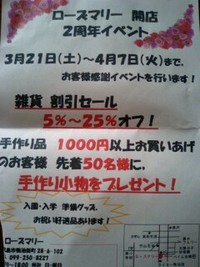 ローズマリー 開店
2周年イベント
3月21日(土)~4月7日(火)まで、
お客様感謝イベントを行います!
雑貨 割引セール
5%~25%オフ!
手作り品 1000円以上お買いあげ
のお客様 先着50名様に、
手作り小物をプレゼント!
入園・入学 準備グッズ、
お祝い好適品あります。
ローズマリー